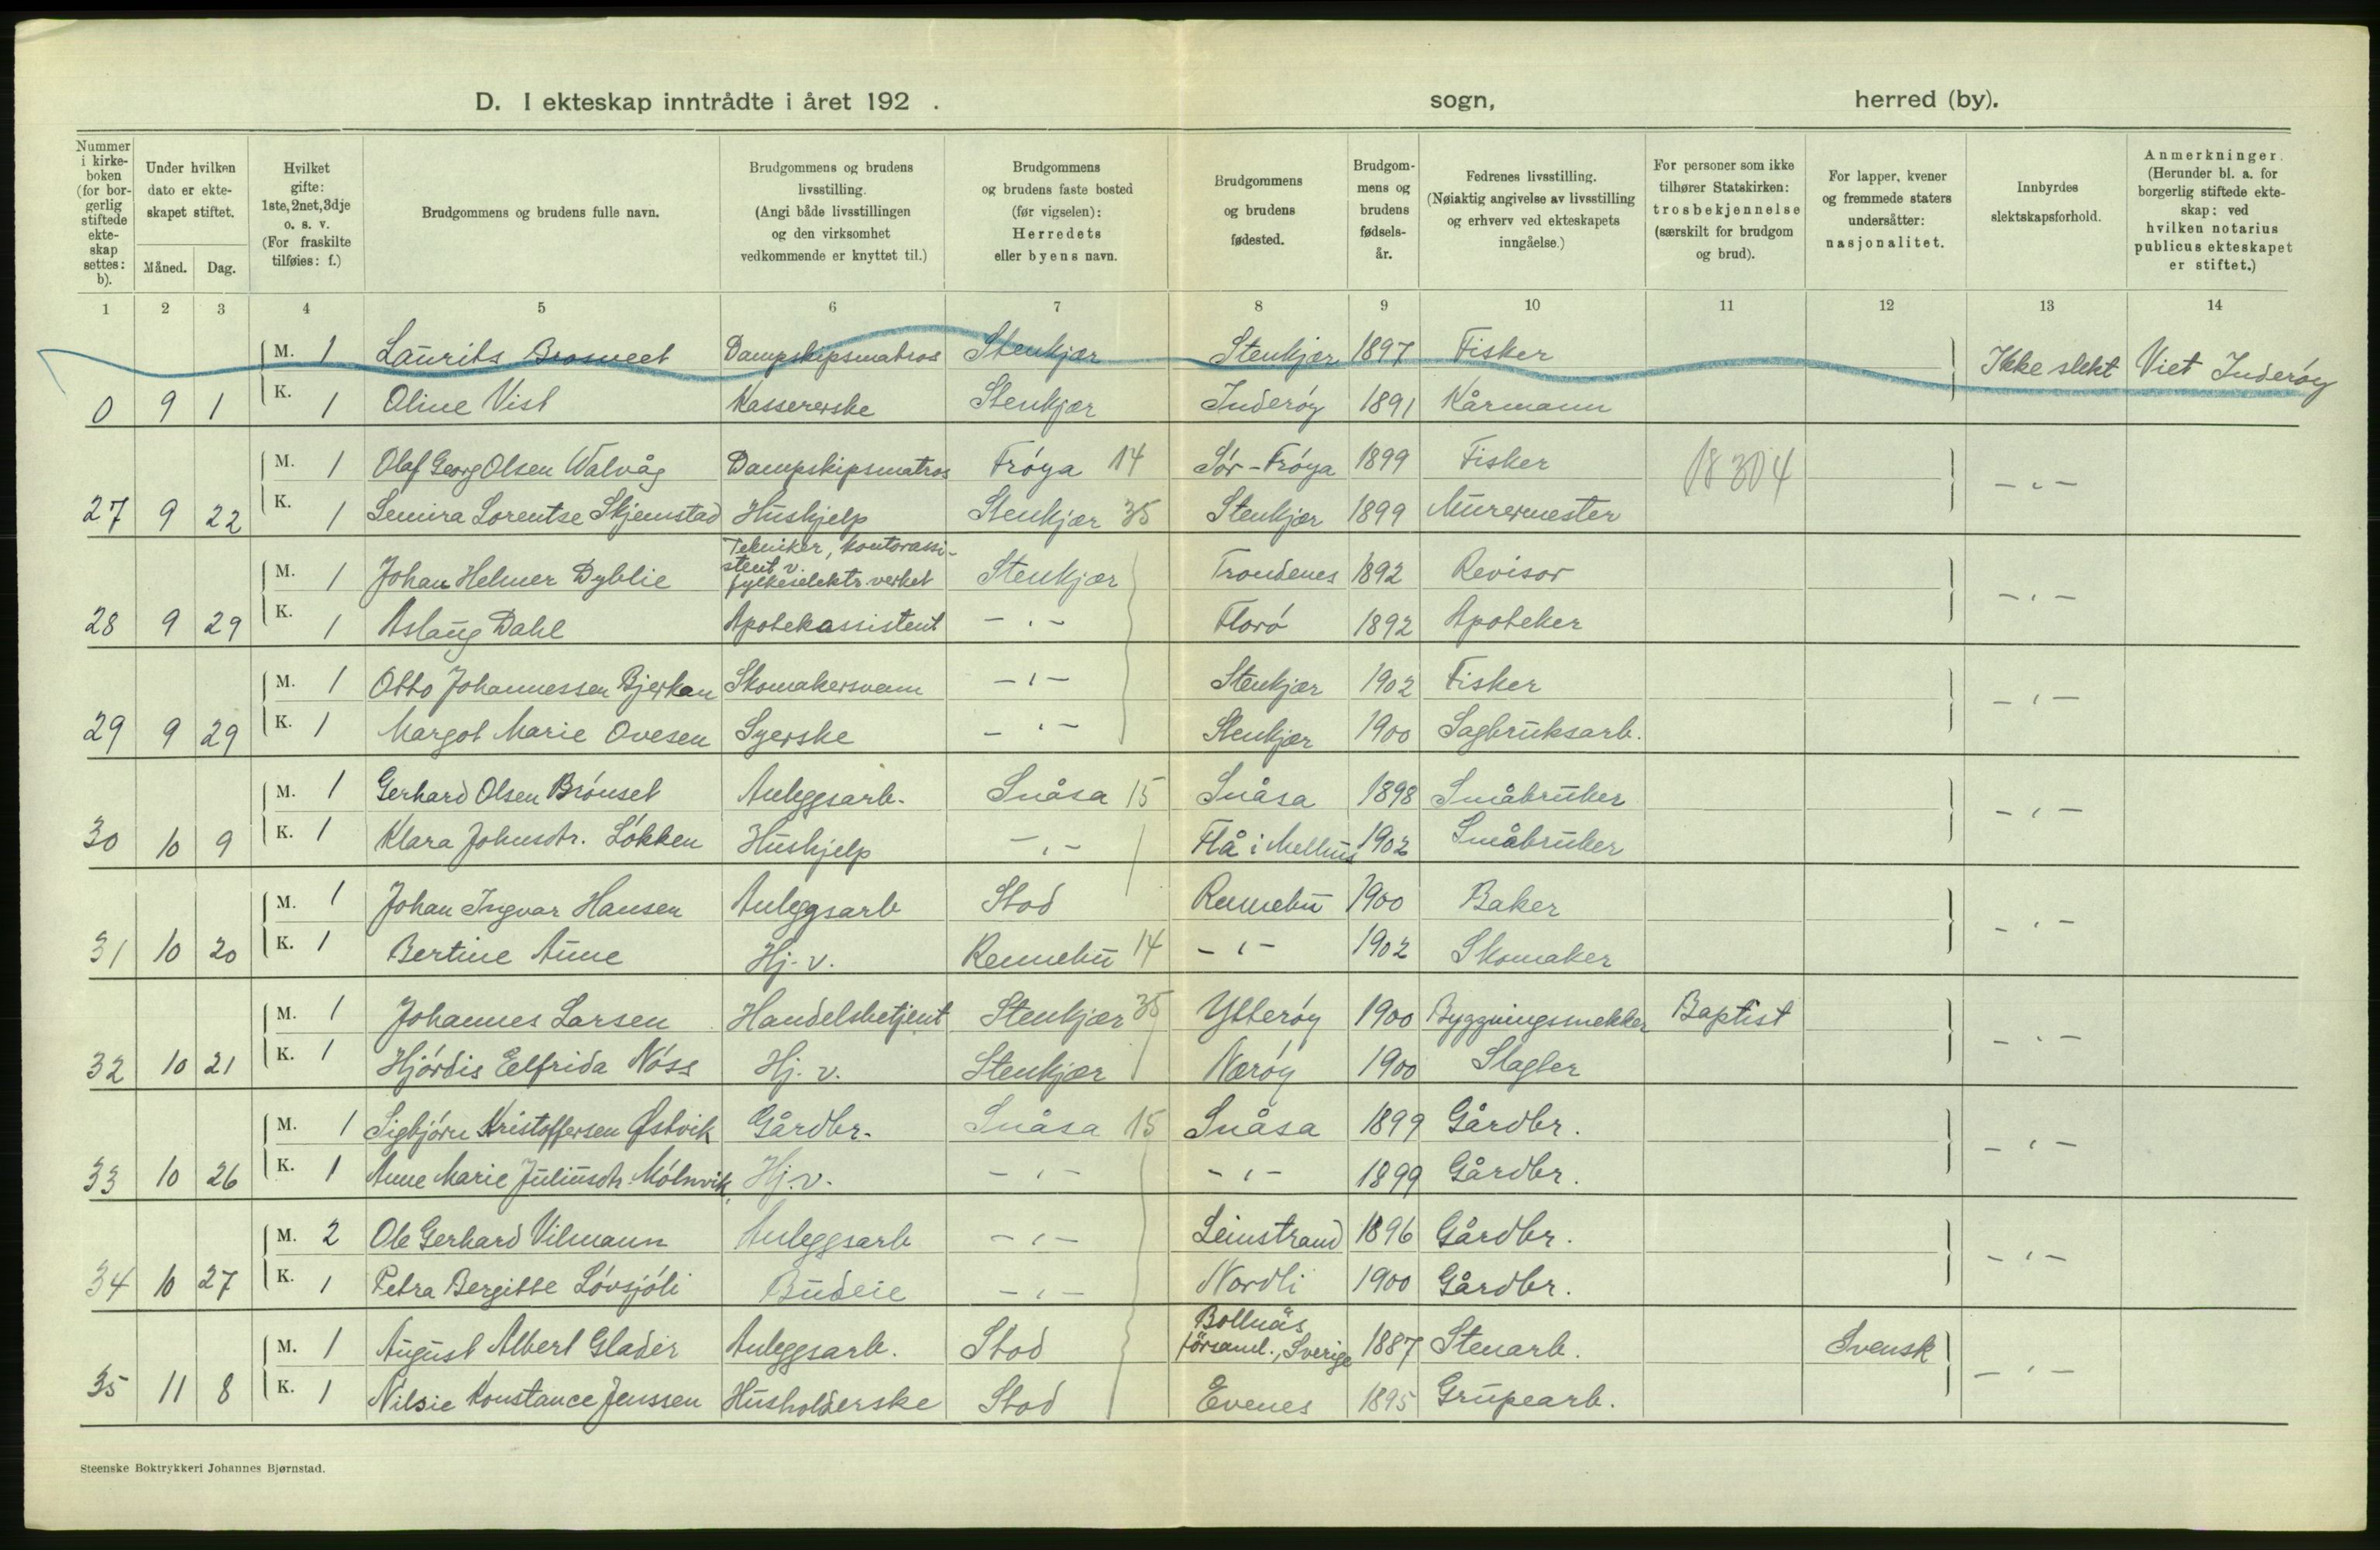 D. I ekteskap inntrådte i året 192 . sogn, herred (by).
Nummer i kirke-boken (for bor-gerlig stiftede ekte-skap settes: b).
Under hvilken dato er ekte-skapet stiftet.
Måned. Dag.
Hvilket gifte: 1ste, 2net, 3dje o. s. v. (For fraskilte tilføies: f.)
Brudgommens og brudens fulle navn.
Brudgommens og brudens livsstilling. (Angi både livsstillingen og den virksomhet vedkommende er knyttet til.)
Brudgommens og brudens faste bosted (før vigselen): Herredets eller byens navn.
Brudgommens og brudens fødested.
Brudgom-mens og brudens fødsels-år.
Fedrenes livsstilling. (Nøiaktig angivelse av livsstilling og erhverv ved ekteskapets inngåelse.)
For personer som ikke tilhører Statskirken: trosbekjennelse (særskilt for brudgom og brud).
For lapper, kvener og fremmede staters undersåtter: nasjonalitet.
Innbyrdes slektskapsforhold.
Anmerkninger. (Herunder bl. a. for borgerlig stiftede ekte-skap: ved hvilken notarius publicus ekteskapet er stiftet.)
1 2 3 4 5 6 7 8 9 10 11 12 13 14
M. 1 Laurits Brosveet Dampskipsmatros Stenkjær Stenkjær 1897 Fisker Ikke slekt Viet Inderøy
0 9 1 K. 1 Oline Vist Kassererske Stenkjær Inderøy 1891 Kårmann
M. 1 Olaf Georg Olsen Walvåg Dampskipsmatros Frøya 14 Sór-Frøya 1899 Fisker 18304 - " -
27 9 22 K. 1 Lemira Lorentse Skjemstad Hushjelp Stenkjær 35 Stenkjær 1899 Murermester
Tekniker, kontorassi-
stent v.
M. 1 Johan Helmer Dyblie fylkeselektr.verket Stenkjær Trondenes 1892 Revisor - " -
28 9 29 K. 1 Aslaug Dahl Apotekassistent - " - Floró 1892 Apoteker
M. 1 Otto Johannessen Bjerkan Skomakersvenn - " - Stenkjær 1902 Fisker - " -
29 9 29 K. 1 Margot Marie Ovesen Syerske - " - Stenkjær 1900 Sagbruksarb.
M. 1 Gerhard Olsen Brónset Anleggsarb. Snåsa 15 Snåsa 1898 Småbruker - " -
30 10 9 K. 1 Klara Johnsdtr. Lókken Hushjelp - " - Flå i Melhus 1902 Småbruker
M. 1 Johan Ingvar Hansen Anleggsarb Stod Rennebu 1900 Baker - " -
31 10 20 K. 1 Bertine Aune Hj. v. Rennebu 14 - " - 1902 Skomaker
M. 1 Johannes Larsen Handelsbetjent Stenkjær 35 Ytterøy 1900 Byggningssnekker Baptist - " -
32 10 21 K. 1 Hjórdis Elfrida Nóss Hj. v. Stenkjær Nærøy 1900 Slagter
M. 1 Sigbjórn Kristoffersen Østvik Gårdbr. Snåsa 15 Snåsa 1899 Gårdbr. - " -
33 10 26 K. 1 Anne Marie Juliusdtr. Mólnvik Hj. v. - " - - " - 1899 Gårdbr.
M. 2 Ole Gerhard Vilmann Anleggsarb - " - Leinstrand 1896 Gårdbr. - " -
34 10 27 K. 1 Petra Bergitte Lóvsjóli Budeie - " - Nordli 1900 Gårdbr.
Bollnäs
M. 1 August Albert Glader Anleggsarb. Stod församl., Sverige 1887 Stenarb. Svensk - " -
35 11 8 K. 1 Nilsie Konstance Jenssen Husholderske Stod Evenes 1895 Grupearb.
Steenske Boktrykkeri Johannes Bjørnstad.